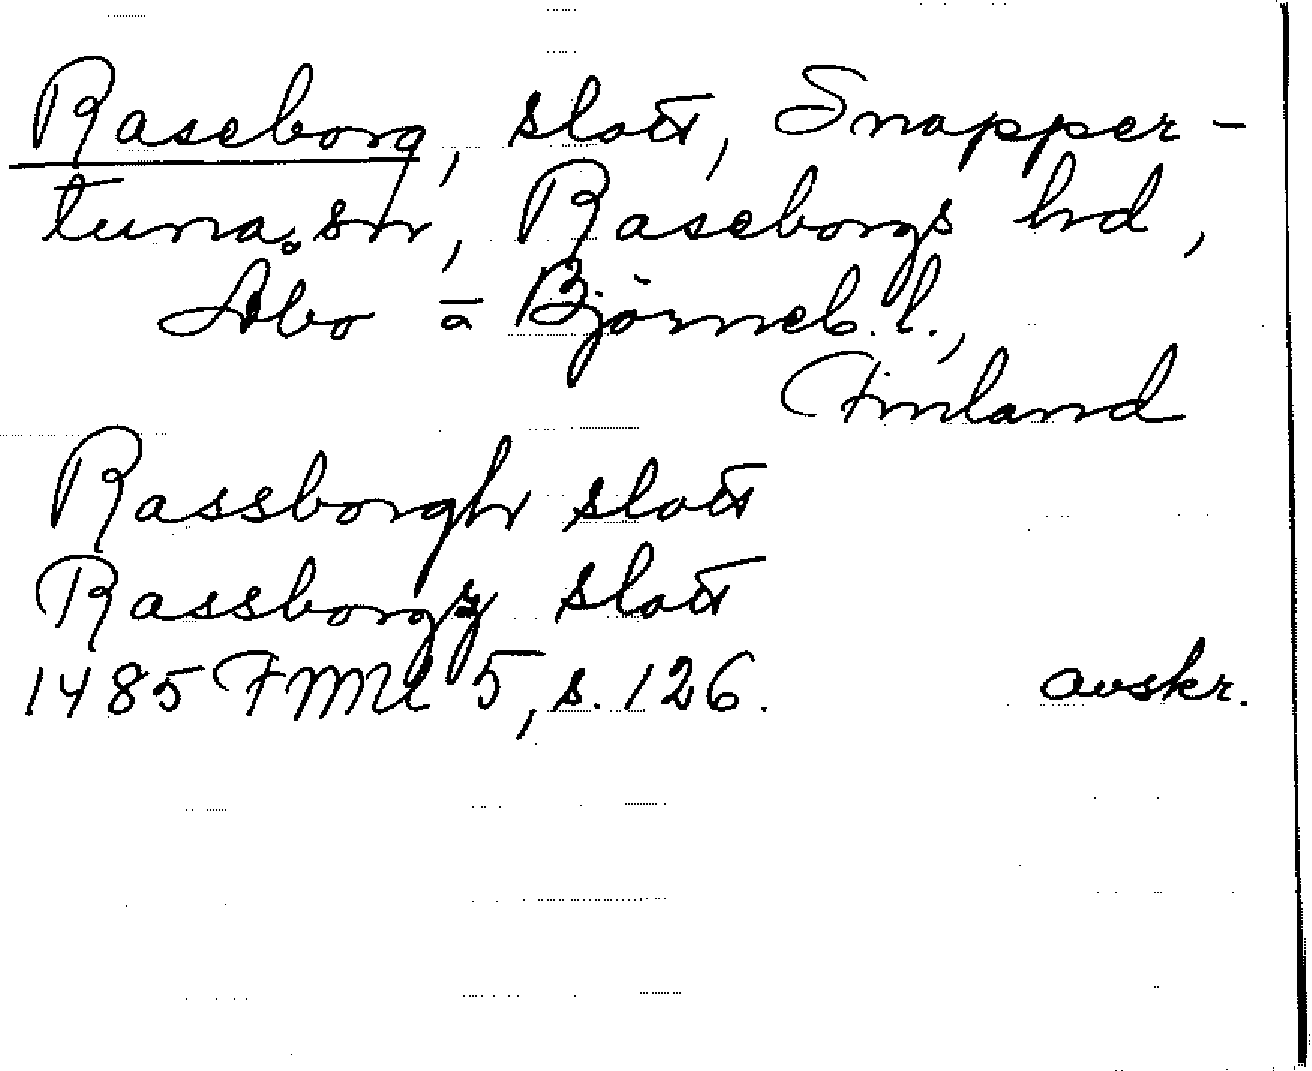 Raseborg, slott, Snapper-
tuna sn, Raseborgs hd,
Åbo = Björneb. l.,
Finland
Rassborgh slott
Rassborgx slott
1485 FMU 5, s. 126. avskr.